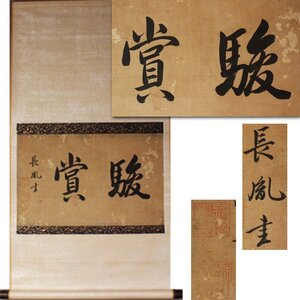 駿賞
駿賞
長胤書
長胤書